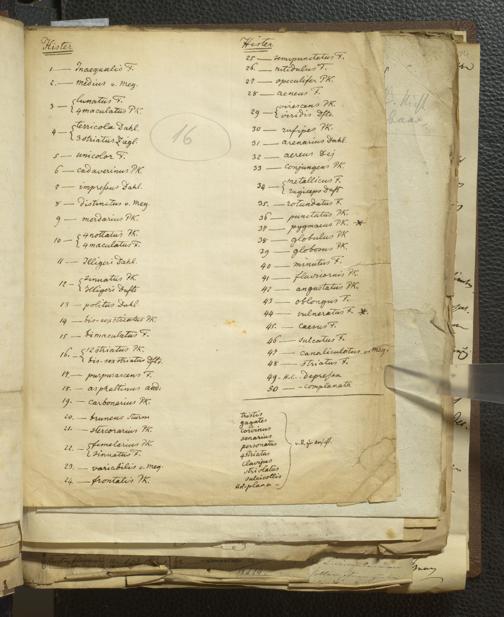 Hister
1 — Inaequalis F.
2. — medius v. Meg.
3 — { lunatus F.
4maculatus PK.
4 — { terricola Dahl.
3striatus Ziegl.
5 — unicolor F.
6 — cadaverinus PK.
7 — impressus Dahl.
8 — distinctus v. Meg.
9 — merdarius PK.
10 — { 4notatus PK.
4maculatus F.
11 — Illigeri Dahl.
12 — { sinuatus PK.
Illigeri Dufts.
13 — politus Dahl
14 — bis-sexstriatus PK.
15 — bimaculatus F.
16. — { 12striatus PK.
bis-sexstriatus Dfts.
17. — purpurascens F.
18. — asphaltinus
19. — carbonarius PK.
20. — bruneus Sturm
21. — stercorarius PK.
22. — { fimetarius PK.
sinuatus F.
23. — variabilis v. Meg.
24. — frontalis PK.
Hister
25 — semipunctatus F.
26. — nitidulus F.
27 — speculifer PK.
28 — aeneus F.
29 — { virescens PK.
viridis Dfts.
30 — rufipes PK.
31 — arenarius Dahl
32 — aereus Dej
33 — conjungens PK.
34 — { metallicus F.
rugiceps Duft
35. — rotundatus F.
36 — punctatus PK.
37 — pygmaeus PK. *
38 — globulus PK.
39 — globosus PK.
40 — minutus F.
41 — flavicornis PK.
42 — angustatus PK.
43 — oblongus F.
44 — vulneratus F. *.
45. — caesus F.
46 — sulcatus F.
47 — canaliculatus v. Meg.
48 — striatus F.
49 - H.C. - Depressa
50 — - complanata
tristis
gagates
corvinus
senarius
personatus
4striatus
clavipes
striolatus
sulcicollis
Hol. plana -
16